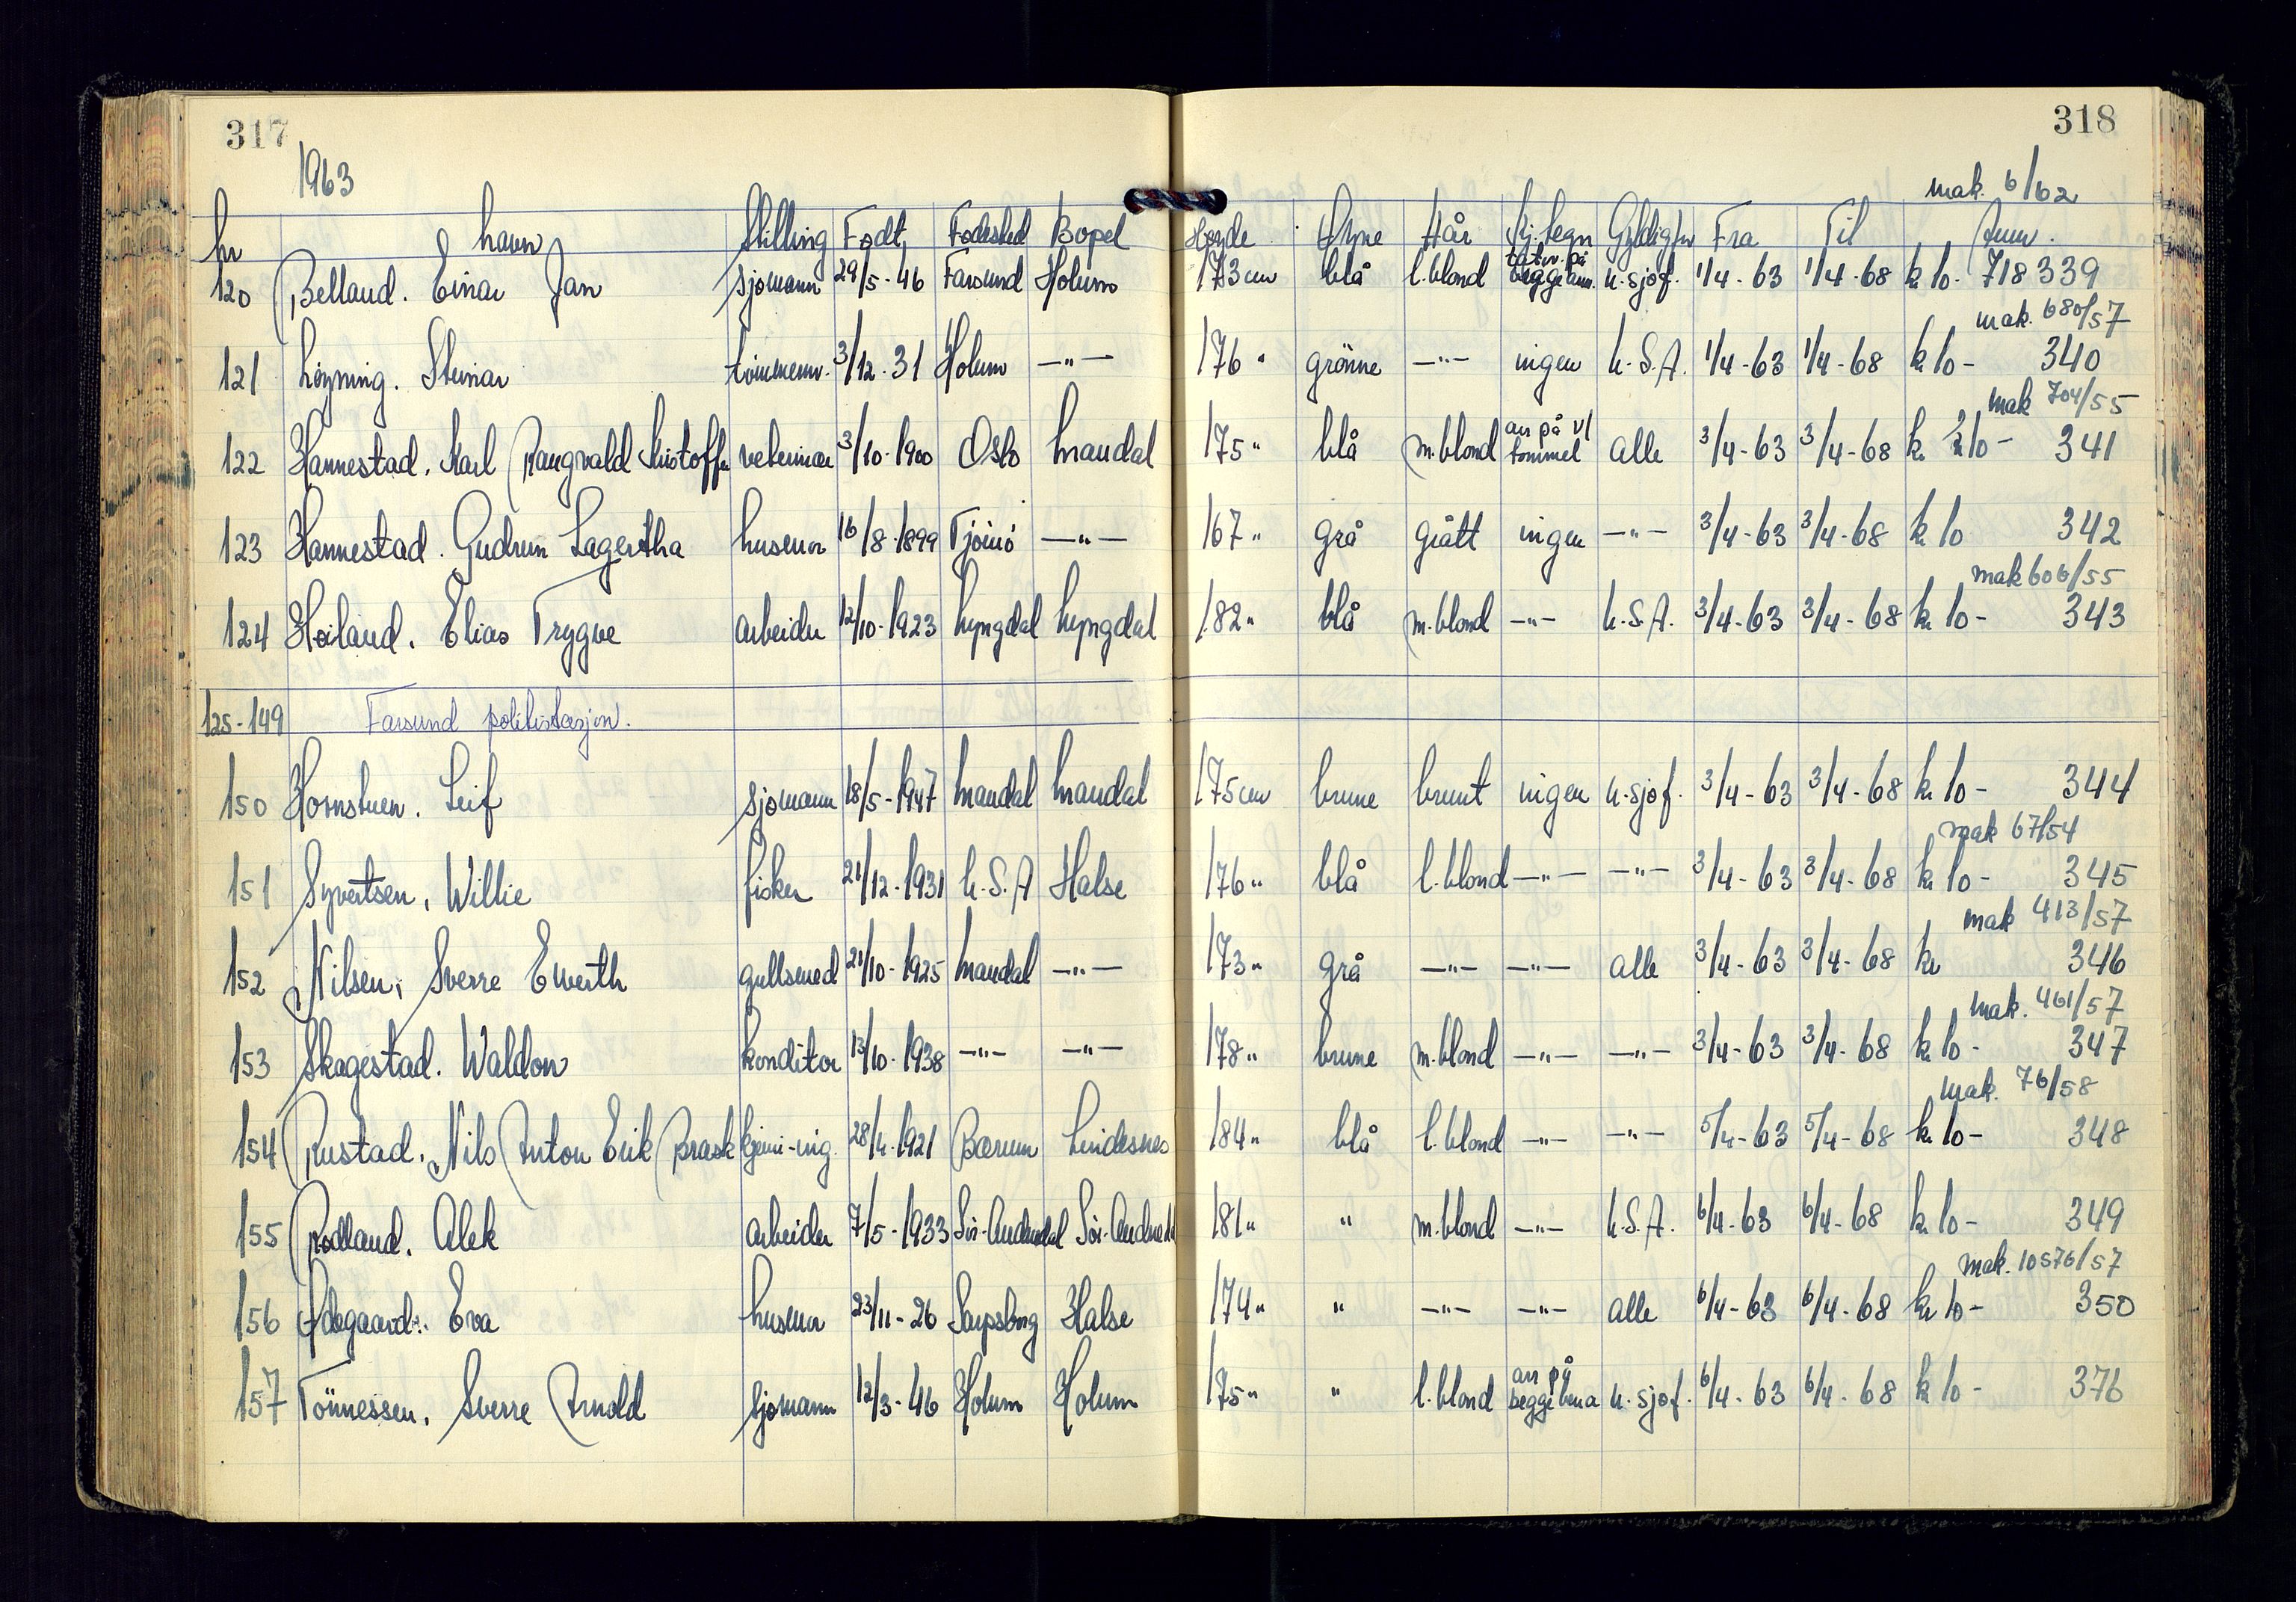 317
318
1963
mak. 6/62
Nr Navn Stilling Født Fødested Bopel Høyde Øyne Hår Kj.tegn Gyldig for Fra Til Anm.
120 Belland. Einar Jan sjømann 29/5-46 Farsund Holum 173 cm blå l.blond tatov. på begge arm. u.sjøf. 1/4-63 1/4-68 kr 10- 718339
mak. 680/57
121 Løyning. Steinar tömmerm. 3/12-31 Holum —"— 176 " grönne —"— ingen U.S.A. 1/4-63 1/4-68 kr 10- 340
mak 704/55
122 Hannestad. Karl Rangvald Kristoffer veterinær 3/10-1900 Oslo Mandal 175 " blå m.blond arr på v/ tommel alle 3/4-63 3/4-68 kr. 10- 341
123 Hannestad. Gudrun Lagertha husmor 16/8-1899 Tjömö —"— 167 " grå grått ingen —"— 3/4-63 3/4-68 kr 10 342
mak 606/55
124 Høiland. Elias Trygve arbeider 12/10-1923 Lyngdal Lyngdal 182 " blå m.blond —"— U.S.A. 3/4-63 3/4-68 kr 10- 343
125-149 Farsund politistasjon.
150 Hornstuen. Leif sjømann 18/5-1947 Mandal Mandal 175 cm brune brunt ingen u.sjøf. 3/4-63 3/4-68 kr. 10- 344
mak 67/54
151 Syvertsen, Willie fisker 21/12-1931 U.S.A Halse 176 " blå l.blond —"— —"— 3/4-63 3/4-68 kr 10- 345
mak 413/57
152 Nilsen, Sverre Ewerth gullsmed 21/10-1925 Mandal —"— 173 " grå —"— —"— alle 3/4-63 3/4-68 kr 346
mak. 461/57
153 Skagestad. Waldon konditor 13/10-1938 —"— —"— 178 " brune m.blond —"— —"— 3/4-63 3/4-68 kr. 10- 347
mak. 76/58
154 Rustad. Nils Anton Erik Brask kjemi-ing. 28/4-1921 Bærum Lindesnes 184 " blå l.blond —"— —"— 5/4-63 5/4-68 kr. 10- 348
155 Rødland. Alek arbeider 7/5-1933 Sör-Audnedal Sör-Audnedal 181 " " m.blond —"— U.S.A. 6/4-63 6/4-68 kr. 10- 349
mak. 10576/57
156 Ødegaard. Eva husmor 23/11-26 Sarpsborg Halse 174 " " —"— —"— alle 6/4-63 6/4-68 kr 10- 350
157 Tönnessen. Sverre Arnold sjømann 12/3-46 Holum Holum 175 " " l.blond arr på begge bena u.sjøf. 6/4-63 6/4-68 kr 10- 376